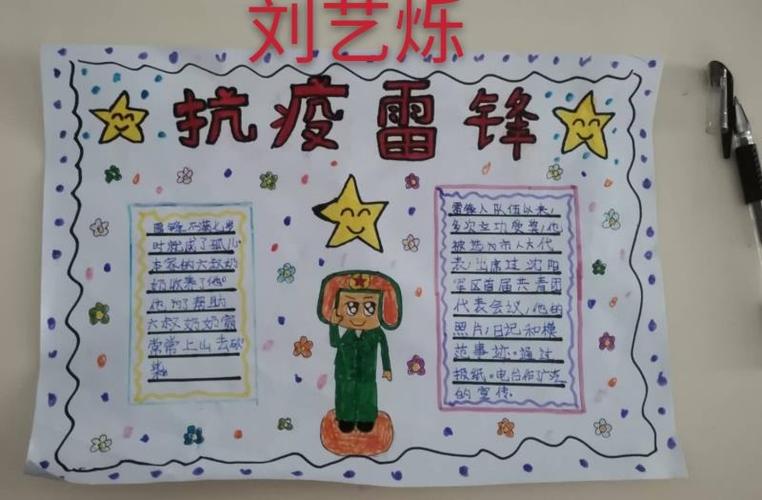 刘艺烁
抗疫雷锋
雷锋不满七岁
时就成了孤儿
本家的六叔奶
奶收养了他。
他为了帮助
六叔奶奶家
常常上山去砍
柴。
雷锋入队伍以来，
多次立功受奖，他
被选为市人大代
表，出席过沈阳
军区首届共青团
代表会议，他的
照片，日记和模
范事迹。通过
报纸。电台作广泛
的宣传。